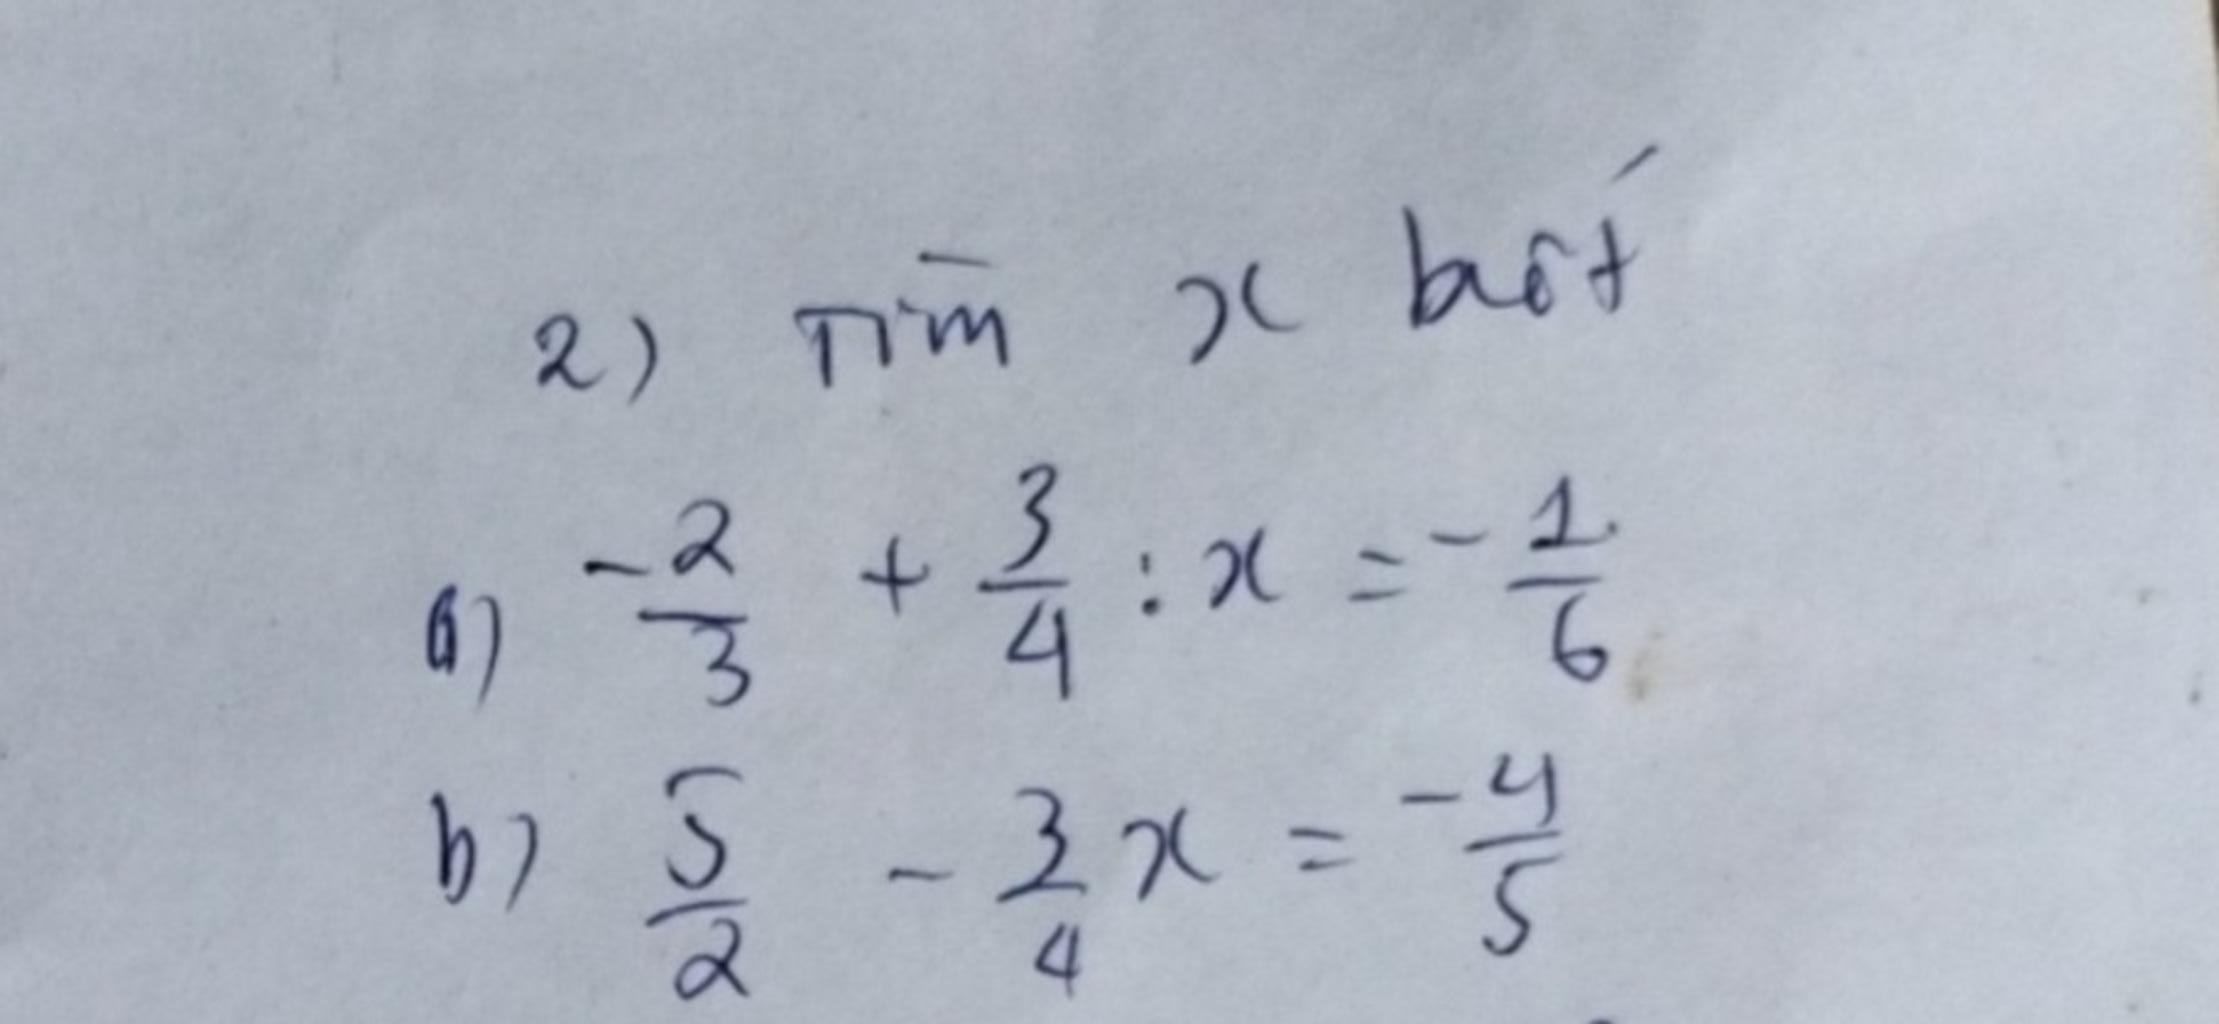 2) Tìm x biết
a) -2/3 + 3/4 : x = -1/6
b) 5/2 - 3/4 x = -4/5